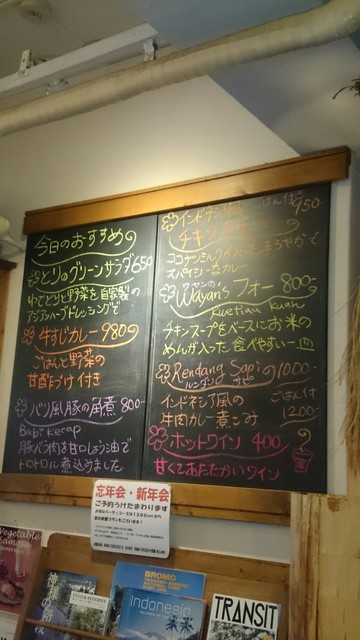 今日のおすすめ
とりのグリーンサラダ650
ゆでどりと野菜を自家製の
アジアンハーブドレッシングで
牛すじカレー 980
ごはんと野菜の
甘酢づけ付き
バリ風豚の角煮 800-
Babi kecap
豚バラ肉を甘口しょう油で
トロトロに煮込みました
インドネシア風 ごはん付き
チキンカレー 950-
ココナツミルクが入ったまろやかで
スパイシーなカレー
Wayan's フォー 800-
Kuetiau Kuah
チキンスープをベースにお米の
めんが入った食べやすい一皿
Rendang Sapi 1000-
ルンダン サピ
インドネシア風の ごはん付
牛肉カレー煮こみ 1200-
ホットワイン 400
甘くてあたたかいワイン
忘年会・新年会
ご予約うけたまわります
Vegetable
BROMO
Indonesia
TRANSIT